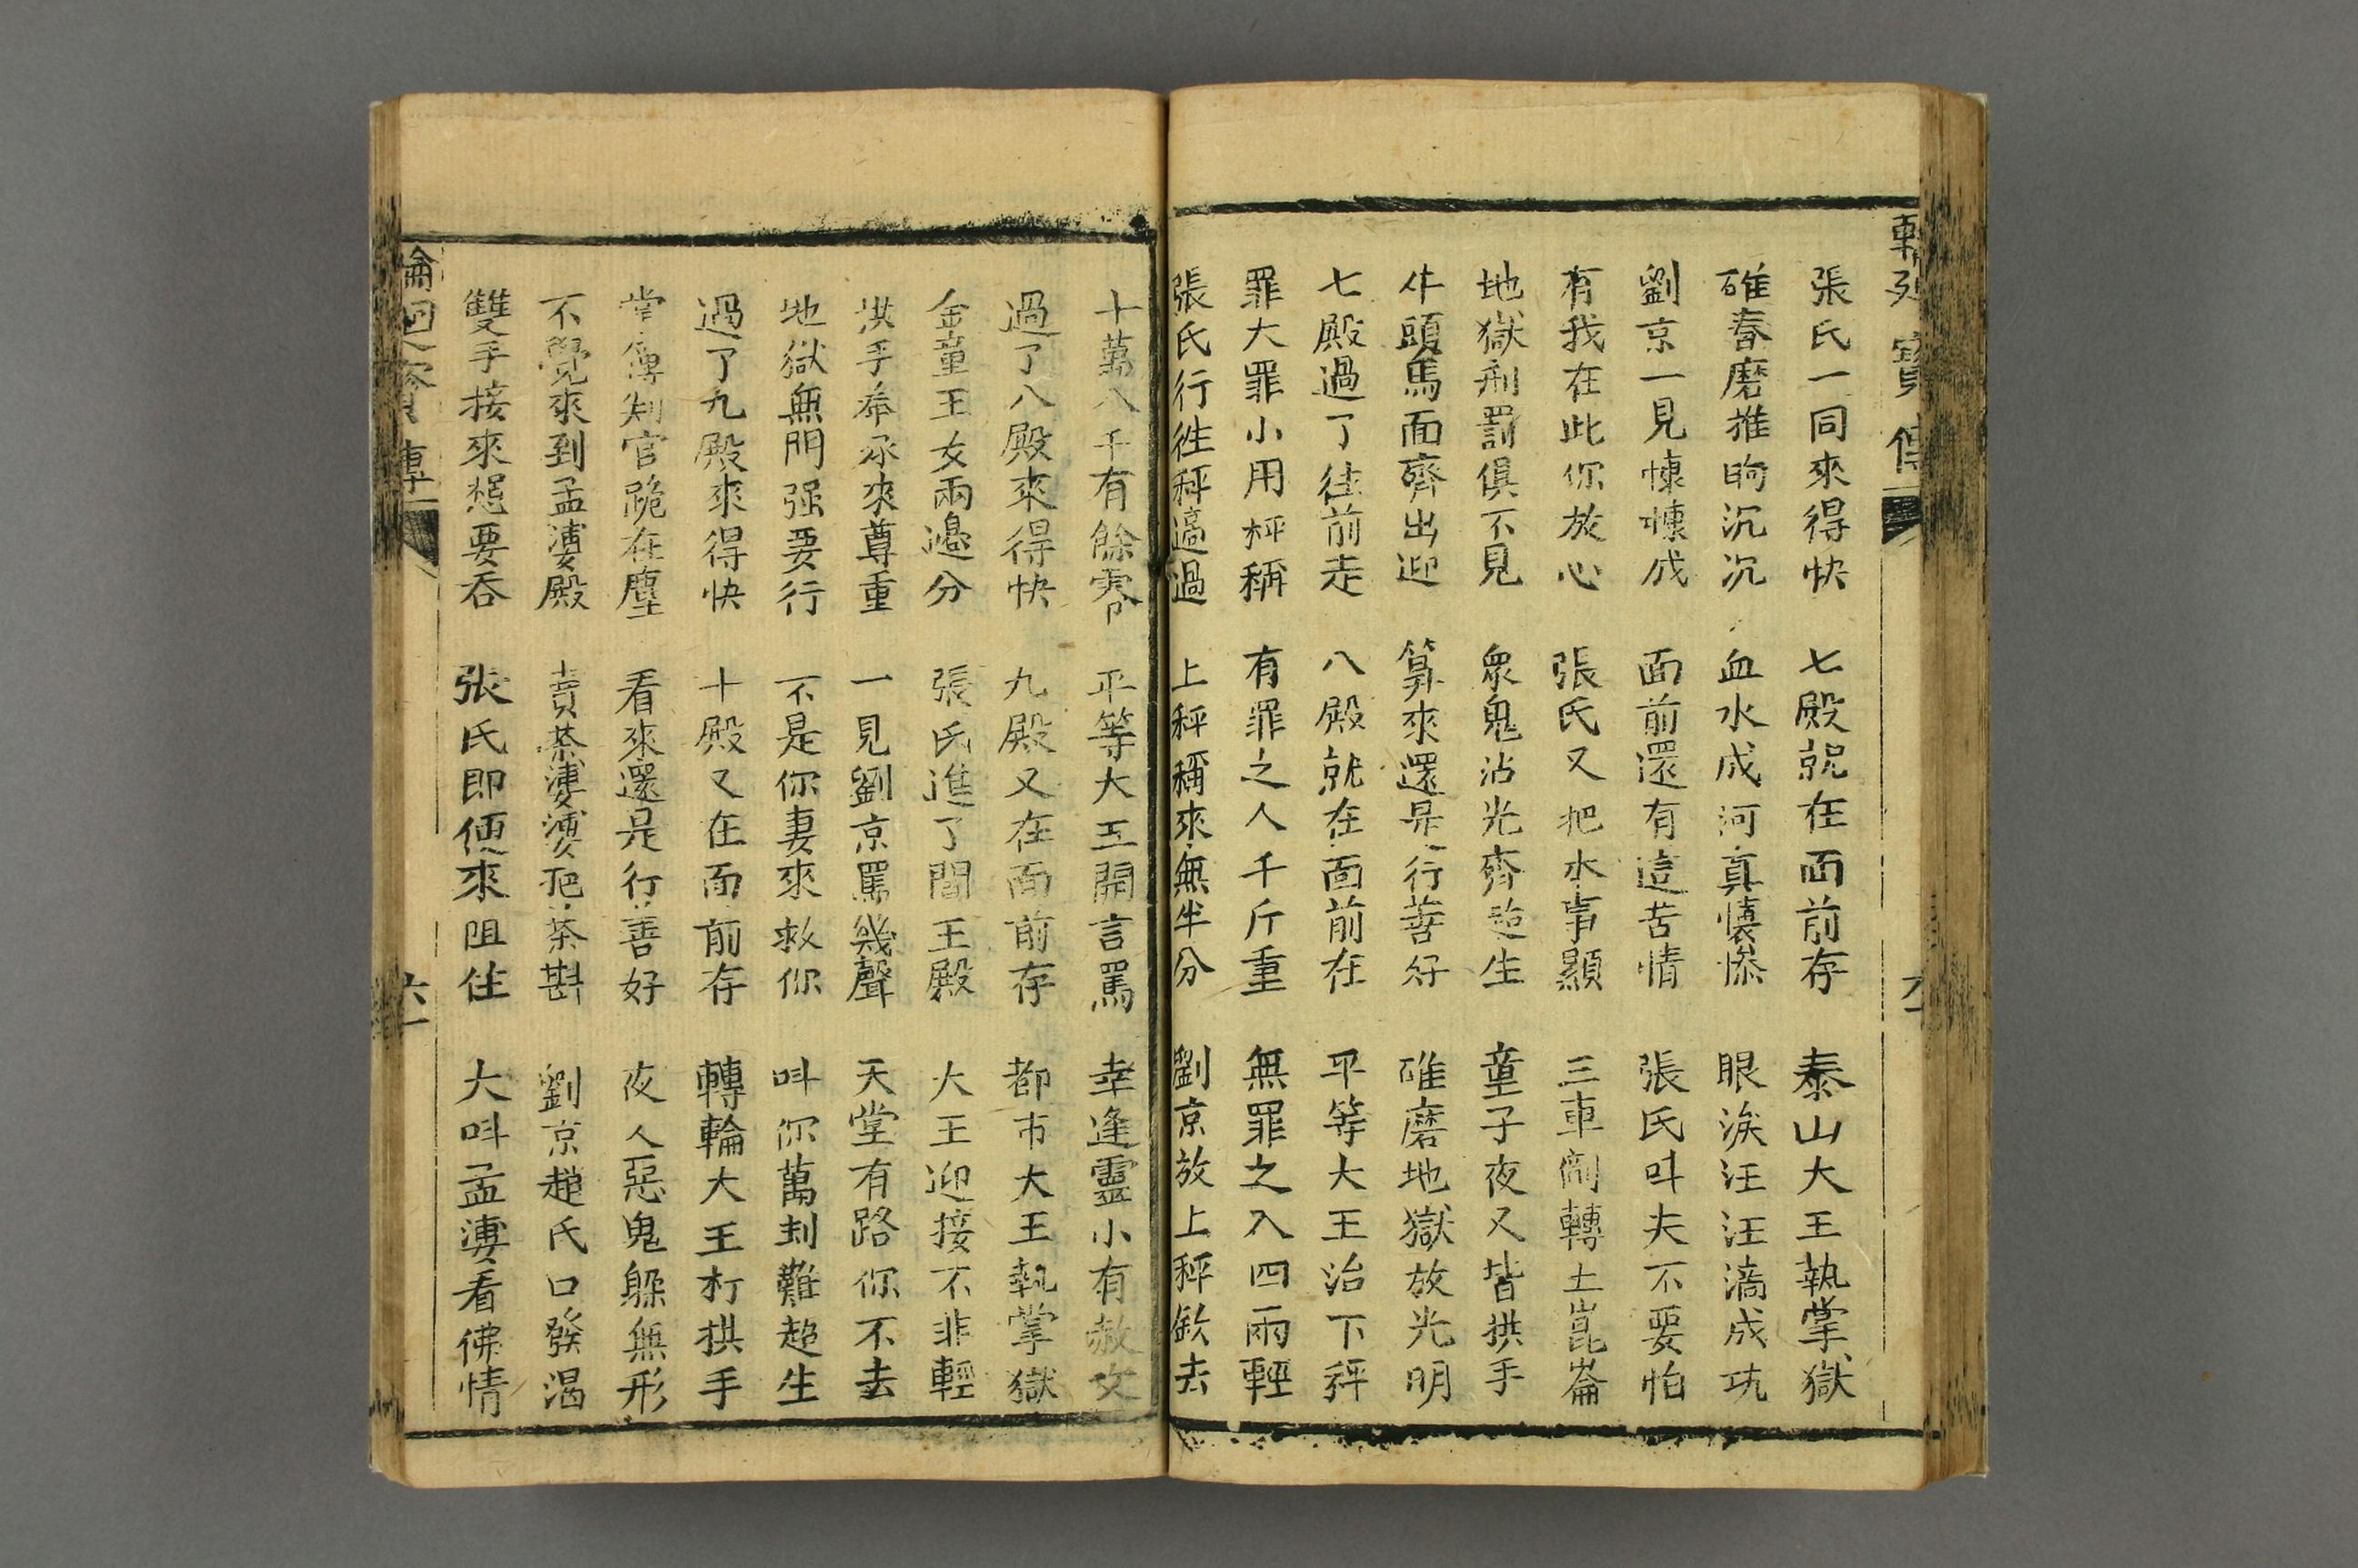 張氏一同來得快 七殿就在面前存 泰山大王執掌獄
碓舂磨推晌沉沉 血水成河真慘 眼淚汪汪滴成坑
劉京一見悽悽成 面前還有這苦情 張氏叫夫不要怕
有我在此你放心 張氏又把水事顯 三車闹轉土崑崙
地獄刑罰俱不見 眾鬼沾光齊超生 童子夜叉皆拱手
牛頭馬面齊出迎 算來還是行善好 碓磨地獄放光明
七殿過了往前走 八殿就在面前在 平等大王治下秤
罪大罪小用秤稱 有罪之人千斤重 無罪之入四兩輕
張氏行徃秤邉過 上秤稱來無半分 劉京放上秤欽去
十萬八千有餘零 平等大王開言罵 幸逢靈小有赦文
過了八殿來得快 九殿又在面前存 都市大王執掌獄
金童王女兩邊分 張氏進了閻王殿 大王迎接不非輕
洪手奉承來尊重 一見劉京罵幾聲 天堂有路你不去
地獄無門强要行 不是你妻來救你 叫你萬刦難超生
過了九殿來得快 十殿又在面前存 轉輪大王打拱手
掌簿判官跪在塵 看來還是行善好 夜人惡鬼躲無形
不覺來到孟婆殿 賣茶婆婆把茶斟 劉京趙氏口發渴
雙手接來想要吞 張氏即便來阻住 大叫孟婆看佛情
輪迴寶傳
六一